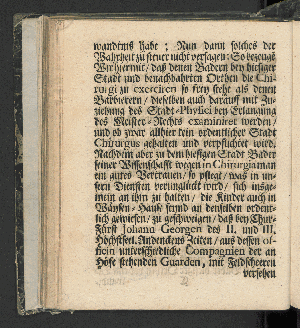 wandtnuß habe; Nun dann solches der
Wahrheit zu steuer nicht versagen: So bezeuge
Wir hiermit / daß denen Badern bey hiesiger
Stadt und benachbahrten Orthen die Chi-
rurgi zu exerciren so frey stehe als denen
Barbierern / dieselben auch darauff mit Zu-
ziehung des Stadt-Physici bey Erlangung
des Meister-Rechts examiniret worden /
und ob zwar allhier kein ordentlicher Stadt
Chirurgus gehalten und verpflichtet wird,
Nachdem aber zu dem hiesigen Stadt Bader
seiner Wissenschafft wegen in Chirurgia man
ein gutes Vertrauen / so pflegt / was in un-
sern Diensten verunglückt wird / sich insge-
mein an ihn zu halten / die Kinder auch in
Wäysen-Hause seynd an denselben ordent-
lich gewiesen / zu geschweigen / daß bey Chur-
Fürst Johann Georgen des II. und III.
Höchstseel. Andenckens Zeiten / aus dessen of-
ficin unterschiedliche Compagnien der an
Hofe stehenden Guarden, mit Feldscherern
versehen